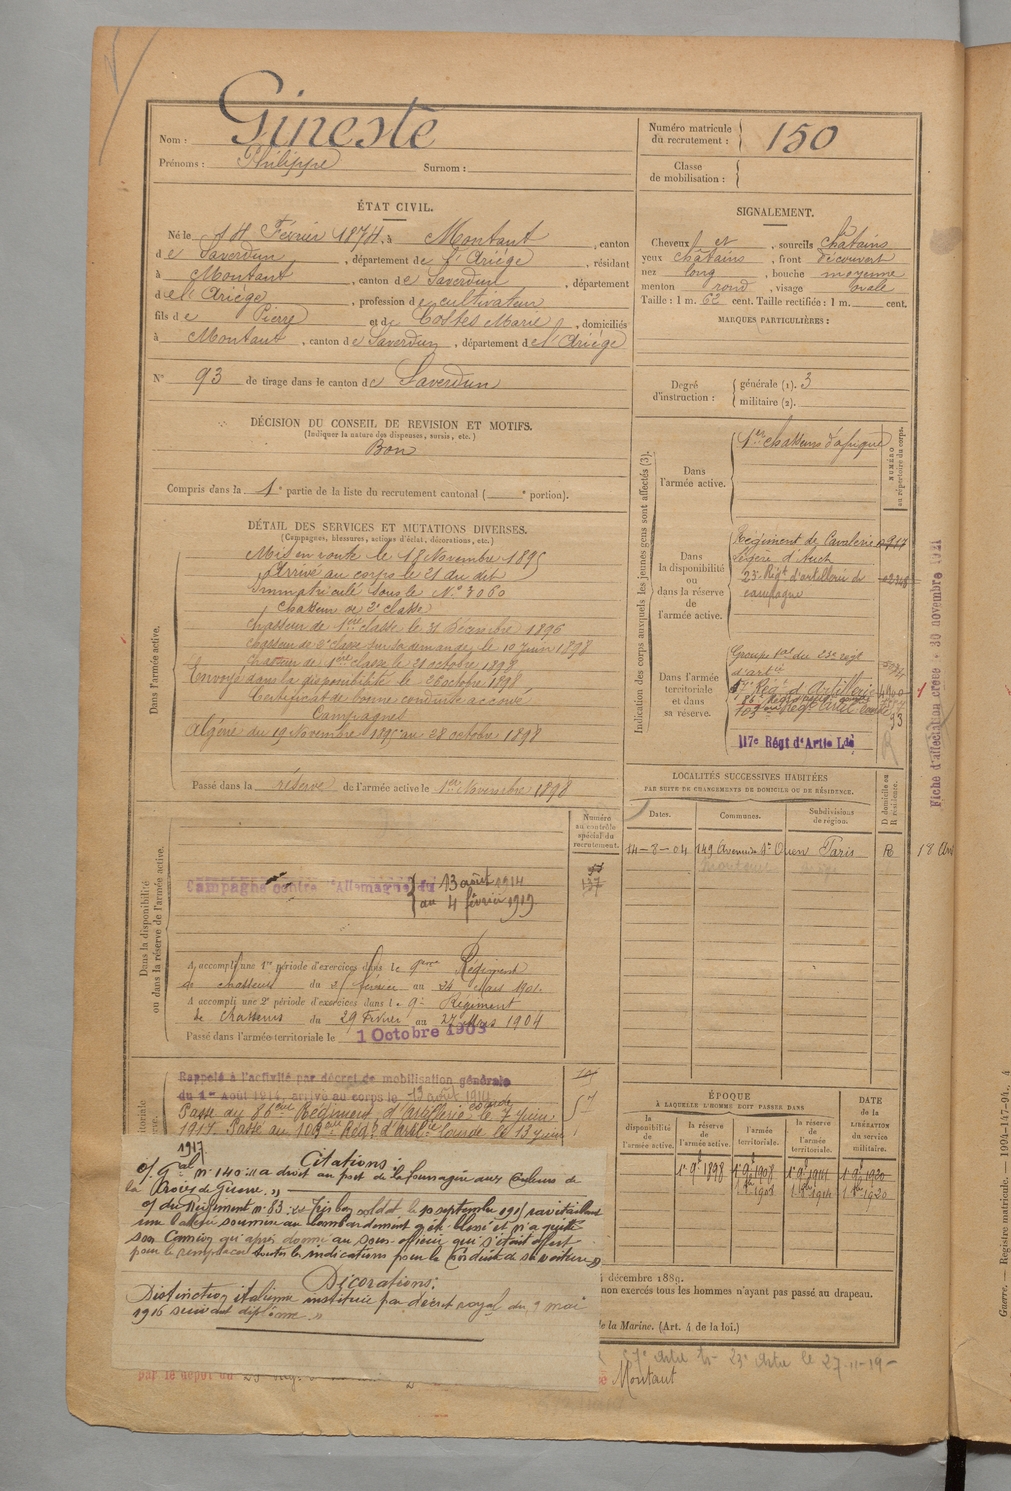 Gineste
Nom :
Prénoms : Philippe Surnom :
Numéro matricule du recrutement : 150
Classe de mobilisation :
ÉTAT CIVIL.
Né le 14 Février 1874, à Montaut, canton
de Saverdun, département de l'Ariège, résidant
à Montaut, canton de Saverdun, département
de l'Ariège, profession de cultivateur
fils de Pierre et de Costes Marie, domiciliés
à Montaut, canton de Saverdun, département de l'Ariège
N° 93 de tirage dans le canton de Saverdun
SIGNALEMENT.
Cheveux et, sourcils châtains
yeux châtains, front découvert
nez long, bouche moyenne
menton rond, visage ovale
Taille : 1 m. 62 cent. Taille rectifiée : 1 m. cent.
MARQUES PARTICULIÈRES :
Degré d'instruction : générale (1). 3
militaire (2).
DÉCISION DU CONSEIL DE REVISION ET MOTIFS.
(Indiquer la nature des dispenses, sursis, etc.)
Bon
Compris dans la 1e partie de la liste du recrutement cantonal ( e portion).
DÉTAIL DES SERVICES ET MUTATIONS DIVERSES.
(Campagnes, blessures, actions d'éclat, décorations, etc.)
Dans l'armée active.
Mis en route le 18 Novembre 1895
Arrivé au corps le 21 du dit
immatriculé sous le N° 7060
chasseur de 2e classe
chasseur de 1ère classe le 31 Décembre 1896
chasseur de 2e classe sur sa demande, le 10 Juin 1898
chasseur de 1ère classe le 21 octobre 1898
Envoyé dans la disponibilité le 26 octobre 1898
Certificat de bonne conduite accordé
Campagnes
Algérie du 19 Novembre 1895 au 28 octobre 1898
Passé dans la réserve de l'armée active le 1er Novembre 1898
Indication des corps auxquels les jeunes gens sont affectés (3).
NUMÉRO au répertoire du corps.
Dans l'armée active.
1er chasseurs d'afrique
Dans la disponibilité ou dans la réserve de l'armée active.
Régiment de Cavalerie
légère d'Auch
23e Régt d'artillerie de
campagne
Dans l'armée territoriale et dans sa réserve.
Groupe tal du 23e régt
d'artie
57e Rég d'Artillerie
117e Régt d'Artie Lde
Fiche d'affectation créée 30 novembre 1921
Dans la disponibilité ou dans la réserve de l'armée active.
Numéro au contrôle spécial du recrutement.
Campagne contre l'Allemagne du 13 août 1914
au 4 février 1919
A accompli une 1re période d'exercices dans le 9ème Régiment
de chasseurs du 25 février au 24 Mars 1901.
A accompli une 2e période d'exercices dans le 9e Régiment
de Chasseurs du 29 Février au 27 Mars 1904
Passé dans l'armée territoriale le 1 Octobre
LOCALITÉS SUCCESSIVES HABITÉES
PAR SUITE DE CHANGEMENTS DE DOMICILE OU DE RÉSIDENCE.
Dates. Communes. Subdivisions de région. D. domicile ou R. résidence.
14-8-04 149 Avenue St Ouen Paris R
Rappelé à l'activité par décret de mobilisation générale
du 1er Août 1914, arrivé au corps le 13 août 1914
Passé au 86ème Régiment d'Artillerie lourde le 7 Juin
1917. Passé au 103ème Régt d'artie lourde le 13 juin
1917.
Citations :
O/ Gal n° 140 : a droit au port de la fourragère aux Couleurs de
la Croix de Guerre. »
O/ du Régiment n° 83 : soldat, le 10 septembre 1915 ravitaillant
une batterie soumise au bombardement a été blessé et n'a quitté
son Camion qu'après donné au sous-officier qui s'était offert
pour le remplacer toutes les indications pour la Conduite de sa voiture »
Décorations :
Distinction italienne instituée par décret royal du 9 mai
1916 suivant diplôme. »
ÉPOQUE
À LAQUELLE L'HOMME DOIT PASSER DANS
la disponibilité de l'armée active. la réserve de l'armée active. l'armée territoriale. la réserve de l'armée territoriale.
DATE de la LIBÉRATION du service militaire.
décembre 1889.
non exercés tous les hommes n'ayant pas passé au drapeau.
de la Marine. (Art. 4 de la loi.)
Montaut
Guerre. — Registre matricule. — 1994-147-94.